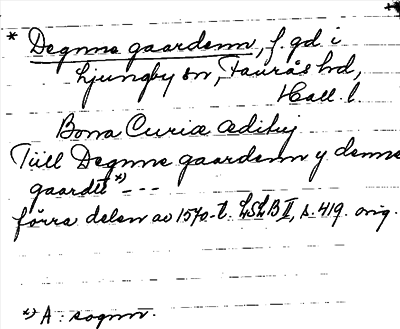 * Degnne gaardenn, f. gd. i
Ljungby sn, Faurås hd,
Hall. l.
Bona Curiæ ædibus
Tiill Degnne gaardenn y denne
gaardtt *) ---
förra delen av 1570-t. LSLB II, s. 419. orig.
*) A: sognn.